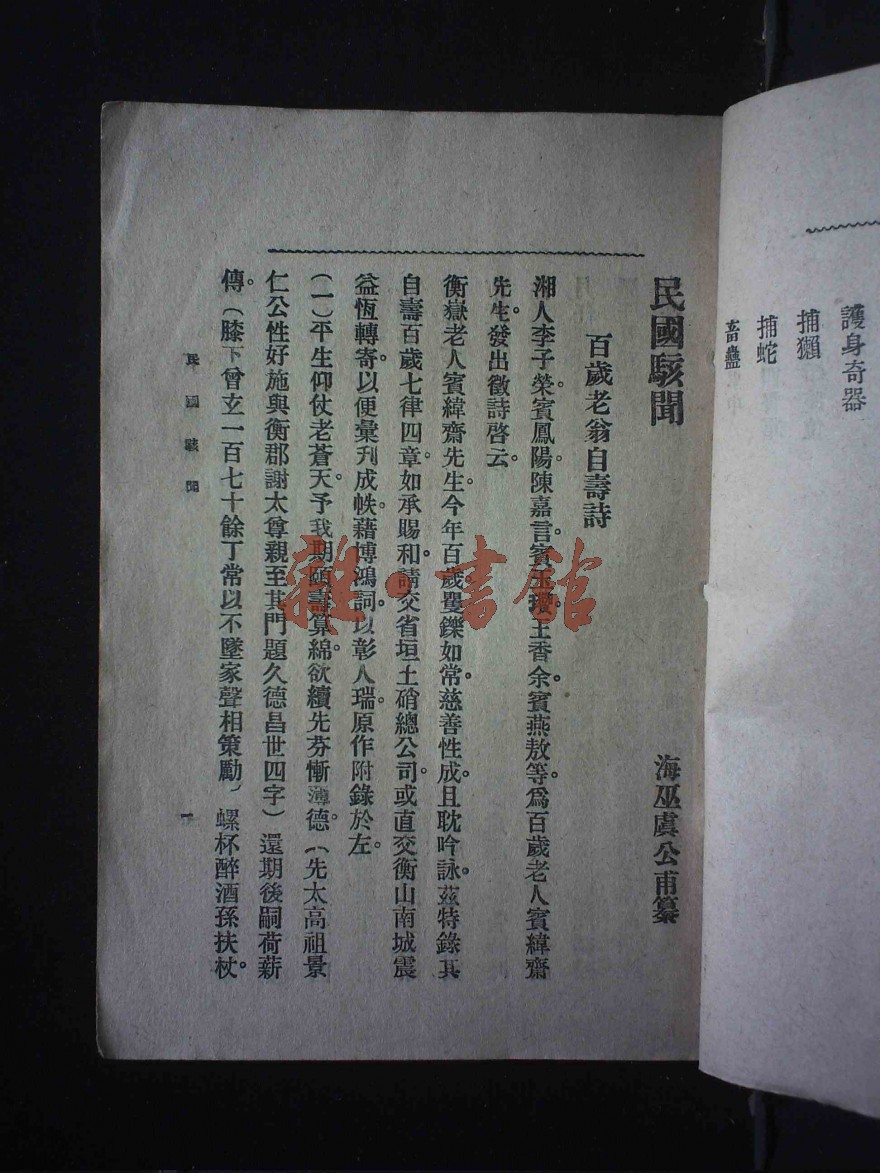 護身奇器
捕獺
捕蛇
畜蠱
民國駭聞
海巫虞公甫纂
百歲老翁自壽詩
湘人李子榮。賓鳳陽。陳嘉言。賓玉瓚。王香余。賓燕敖等。爲百歲老人賓緯齋
先生。發出徵詩啓云。
衡嶽老人賓緯齋先生。今年百歲。矍鑠如常。慈善性成。且耽吟詠。茲特錄其
自壽百歲七律四章。如承賜和。請交省垣土硝總公司。或直交衡山南城震
益恆轉寄。以便彙刋成帙。藉博鴻詞。以彰人瑞。原作附錄於左。
(一)平生仰仗老蒼天。予我期頤壽算綿。欲續先芬慚薄德。(先太高祖景
仁公性好施與衡郡謝太尊親至其門題久德昌世四字)還期後嗣荷薪
傳。(膝下曾玄一百七十餘丁常以不墜家聲相策勵)螺杯醉酒孫扶杖。
民國駭聞
一
雜·書館